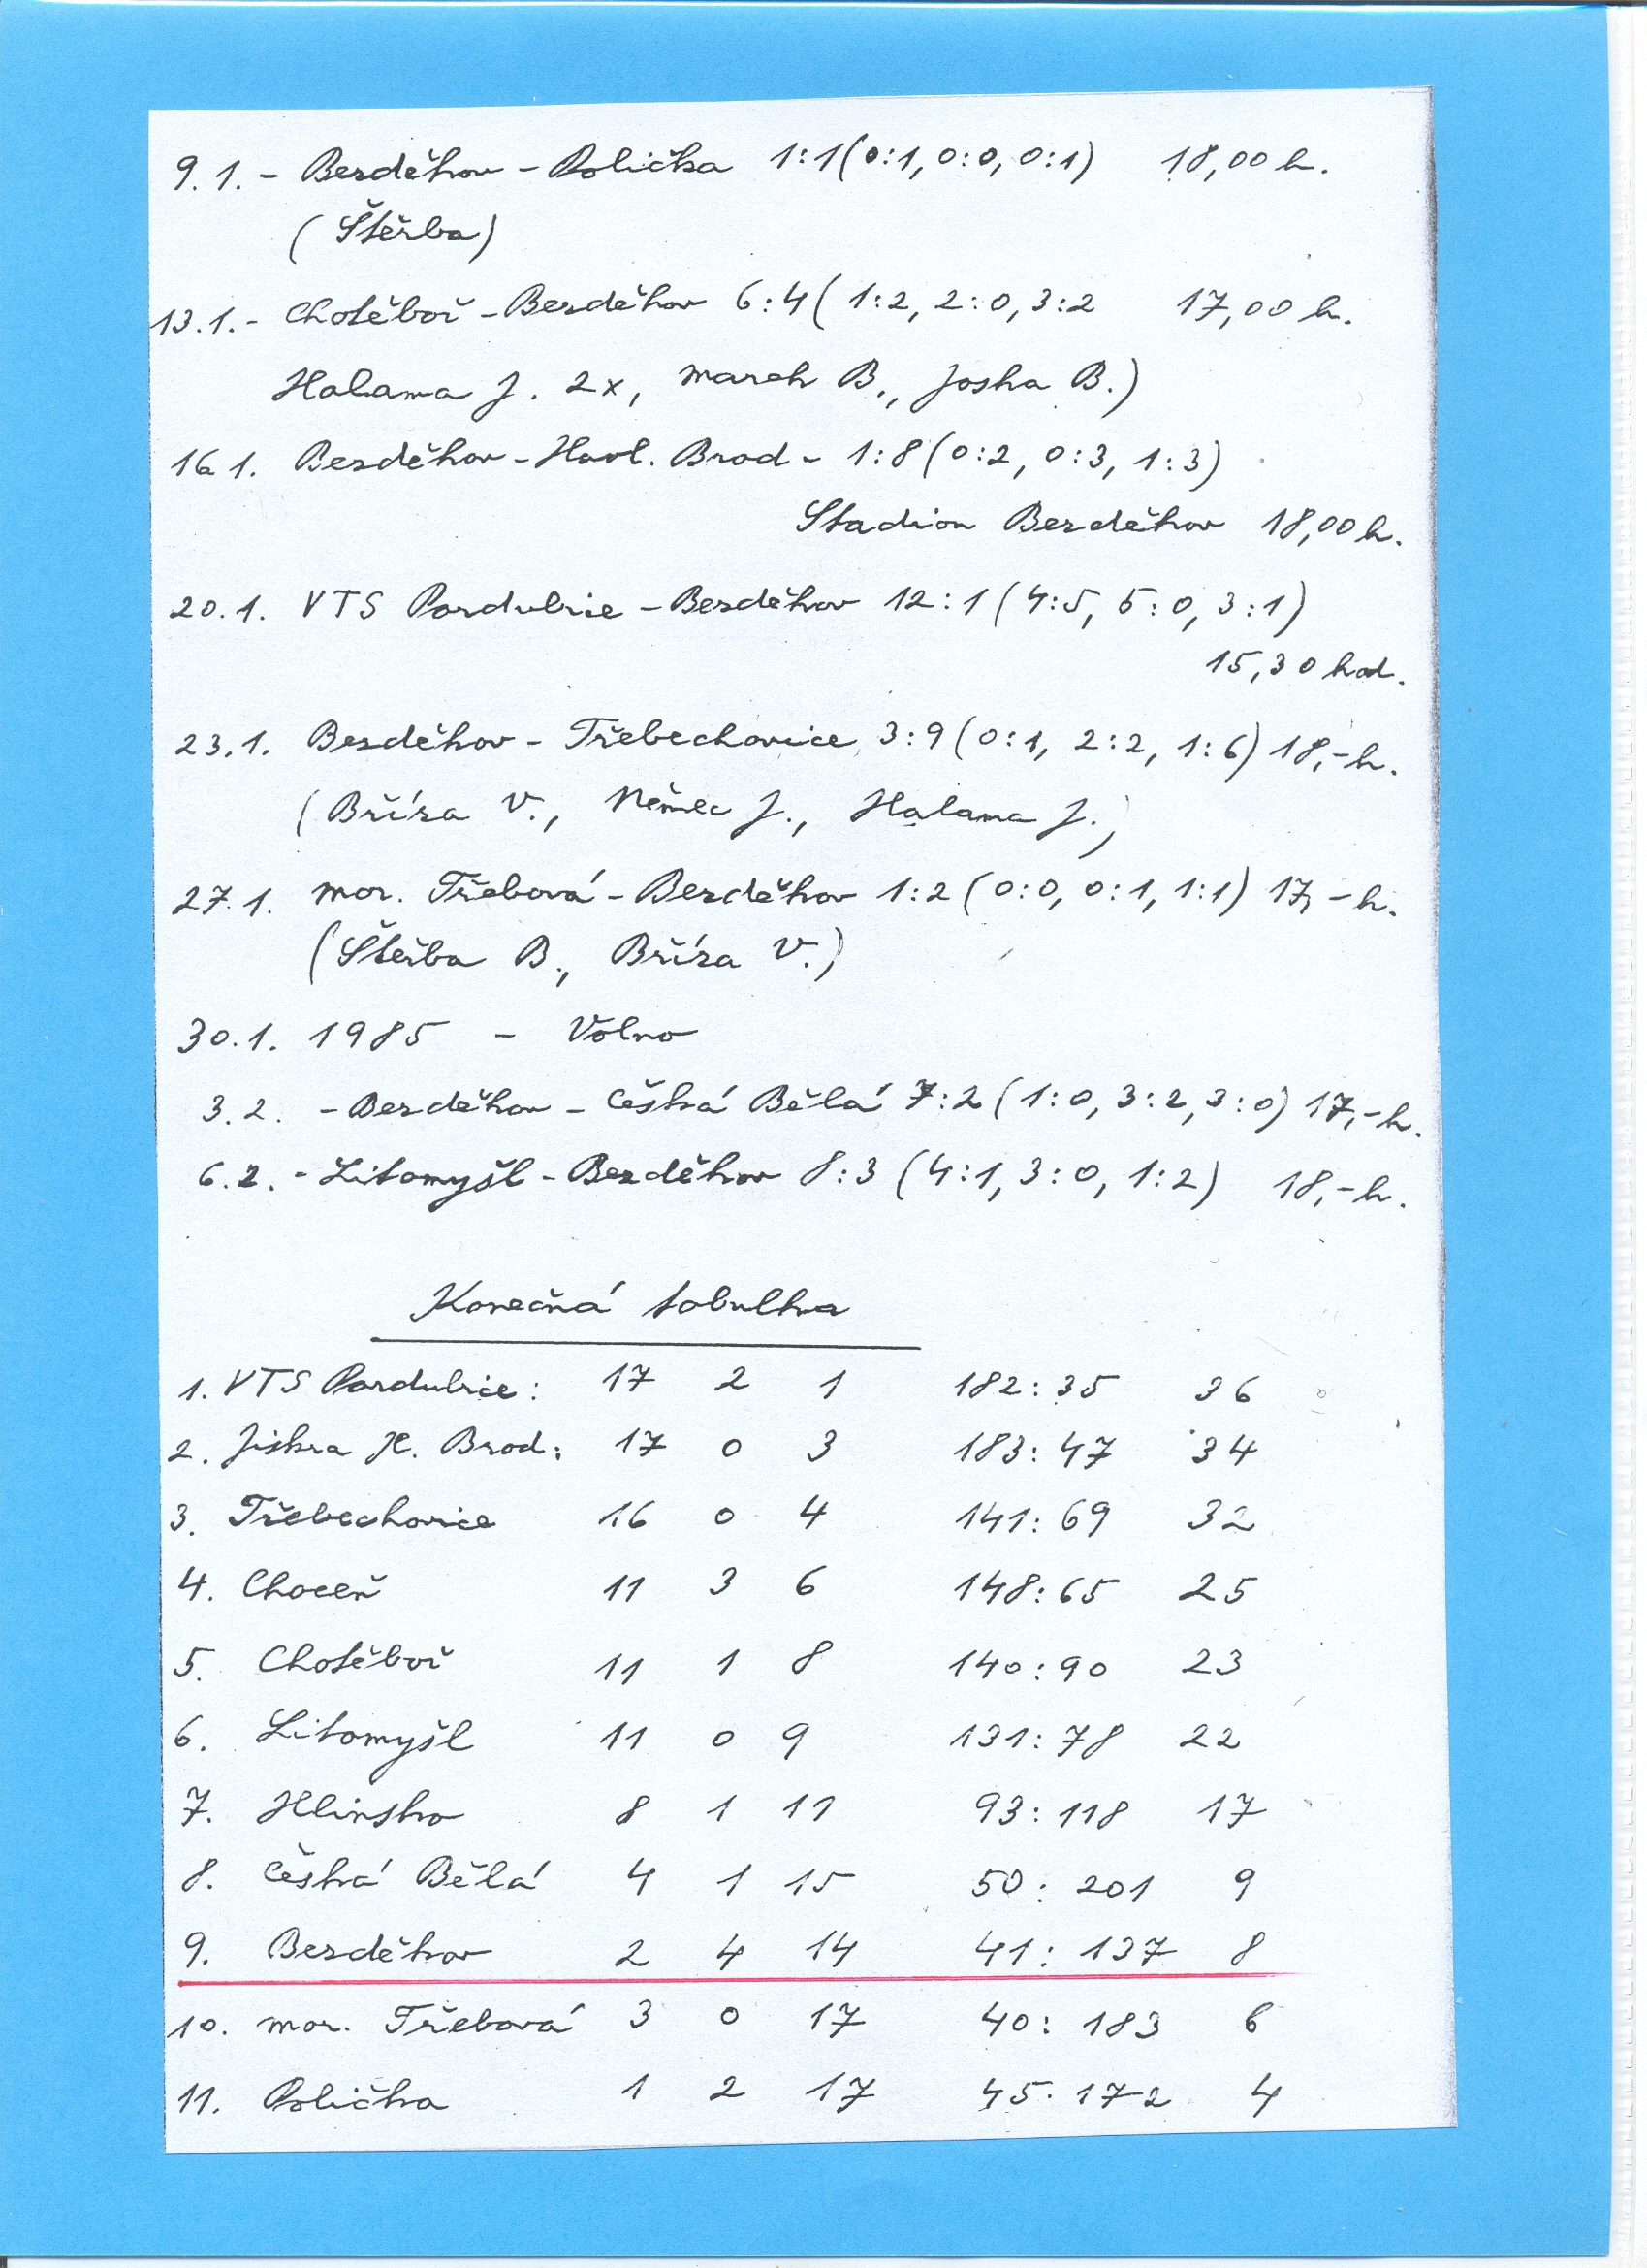 9.1. - Bezděkov - Polička 1:1 (0:1, 0:0, 0:1) 18,00 h.
(Štěrba)
13.1. - Chotěboř - Bezděkov 6:4 ( 1:2, 2:0, 3:2 17,00 h.
Halama J. 2x, Marek B., Joska B.)
16 1. Bezděkov - Havl. Brod - 1:8 (0:2, 0:3, 1:3)
Stadion Bezděkov 18,00 h.
20.1. VTS Pardubice - Bezděkov 12:1 ( 4:5, 5:0, 3:1)
15,30 hod.
23.1. Bezděkov - Třebechovice 3:9 (0:1, 2:2, 1:6) 18,- h.
(Bříza V., Němec J., Halama J.)
27.1. Mor. Třebová - Bezděkov 1:2 (0:0, 0:1, 1:1) 17,- h.
(Štěrba B., Bříza V.)
30.1. 1985 - Volno
3.2. - Bezděkov - Česká Bělá 7:2 (1:0, 3:2, 3:0) 17,- h.
6.2. - Litomyšl - Bezděkov 8:3 (4:1, 3:0, 1:2) 18,- h.
Konečná tabulka
1. VTS Pardubice: 17 2 1 182:35 36
2. Jiskra H. Brod: 17 0 3 183:47 34
3. Třebechovice 16 0 4 141:69 32
4. Choceň 11 3 6 148:65 25
5. Chotěboř 11 1 8 140:90 23
6. Litomyšl 11 0 9 131:78 22
7. Hlinsko 8 1 11 93:118 17
8. Česká Bělá 4 1 15 50:201 9
9. Bezděkov 2 4 14 41:137 8
10. Mor. Třebová 3 0 17 40:183 6
11. Polička 1 2 17 45:172 4